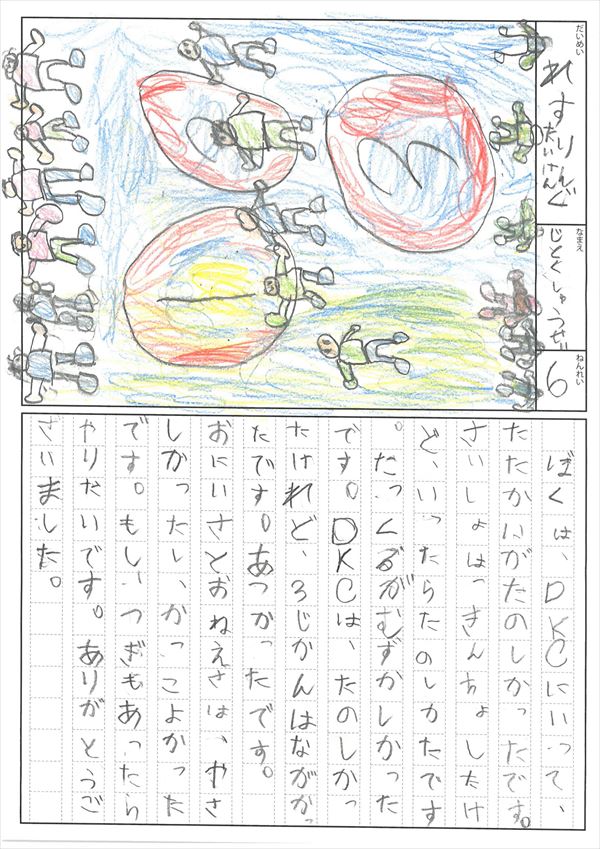 だいめい
れすりんぐ
たいけん
なまえ
ねんれい
6
1
ぼくは、DKCにいって、
たたかいがたのしかったです。
さいしょは、きんちょしたけ
ど、いったらたのしかたです
。たっくるがむずかしかった
です。DKCは、たのしかっ
たけれど、3じかんはながかっ
たです。あつかったです。
おにいさとおねえさは、やさ
しかったし、かっこよかった
です。もし、つぎもあったら
やりたいです。ありがとうご
ざいました。